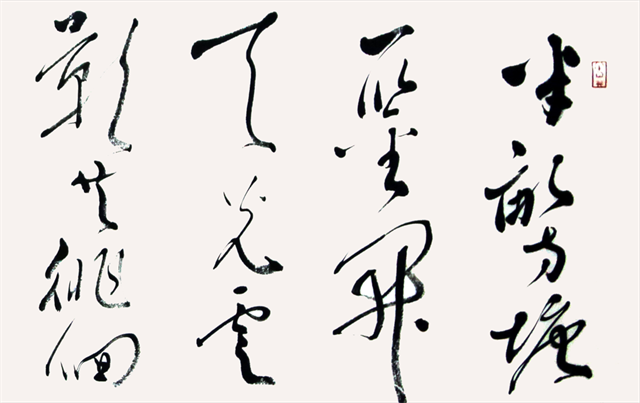 半畝方塘
一鑒開
天光雲
影共徘徊